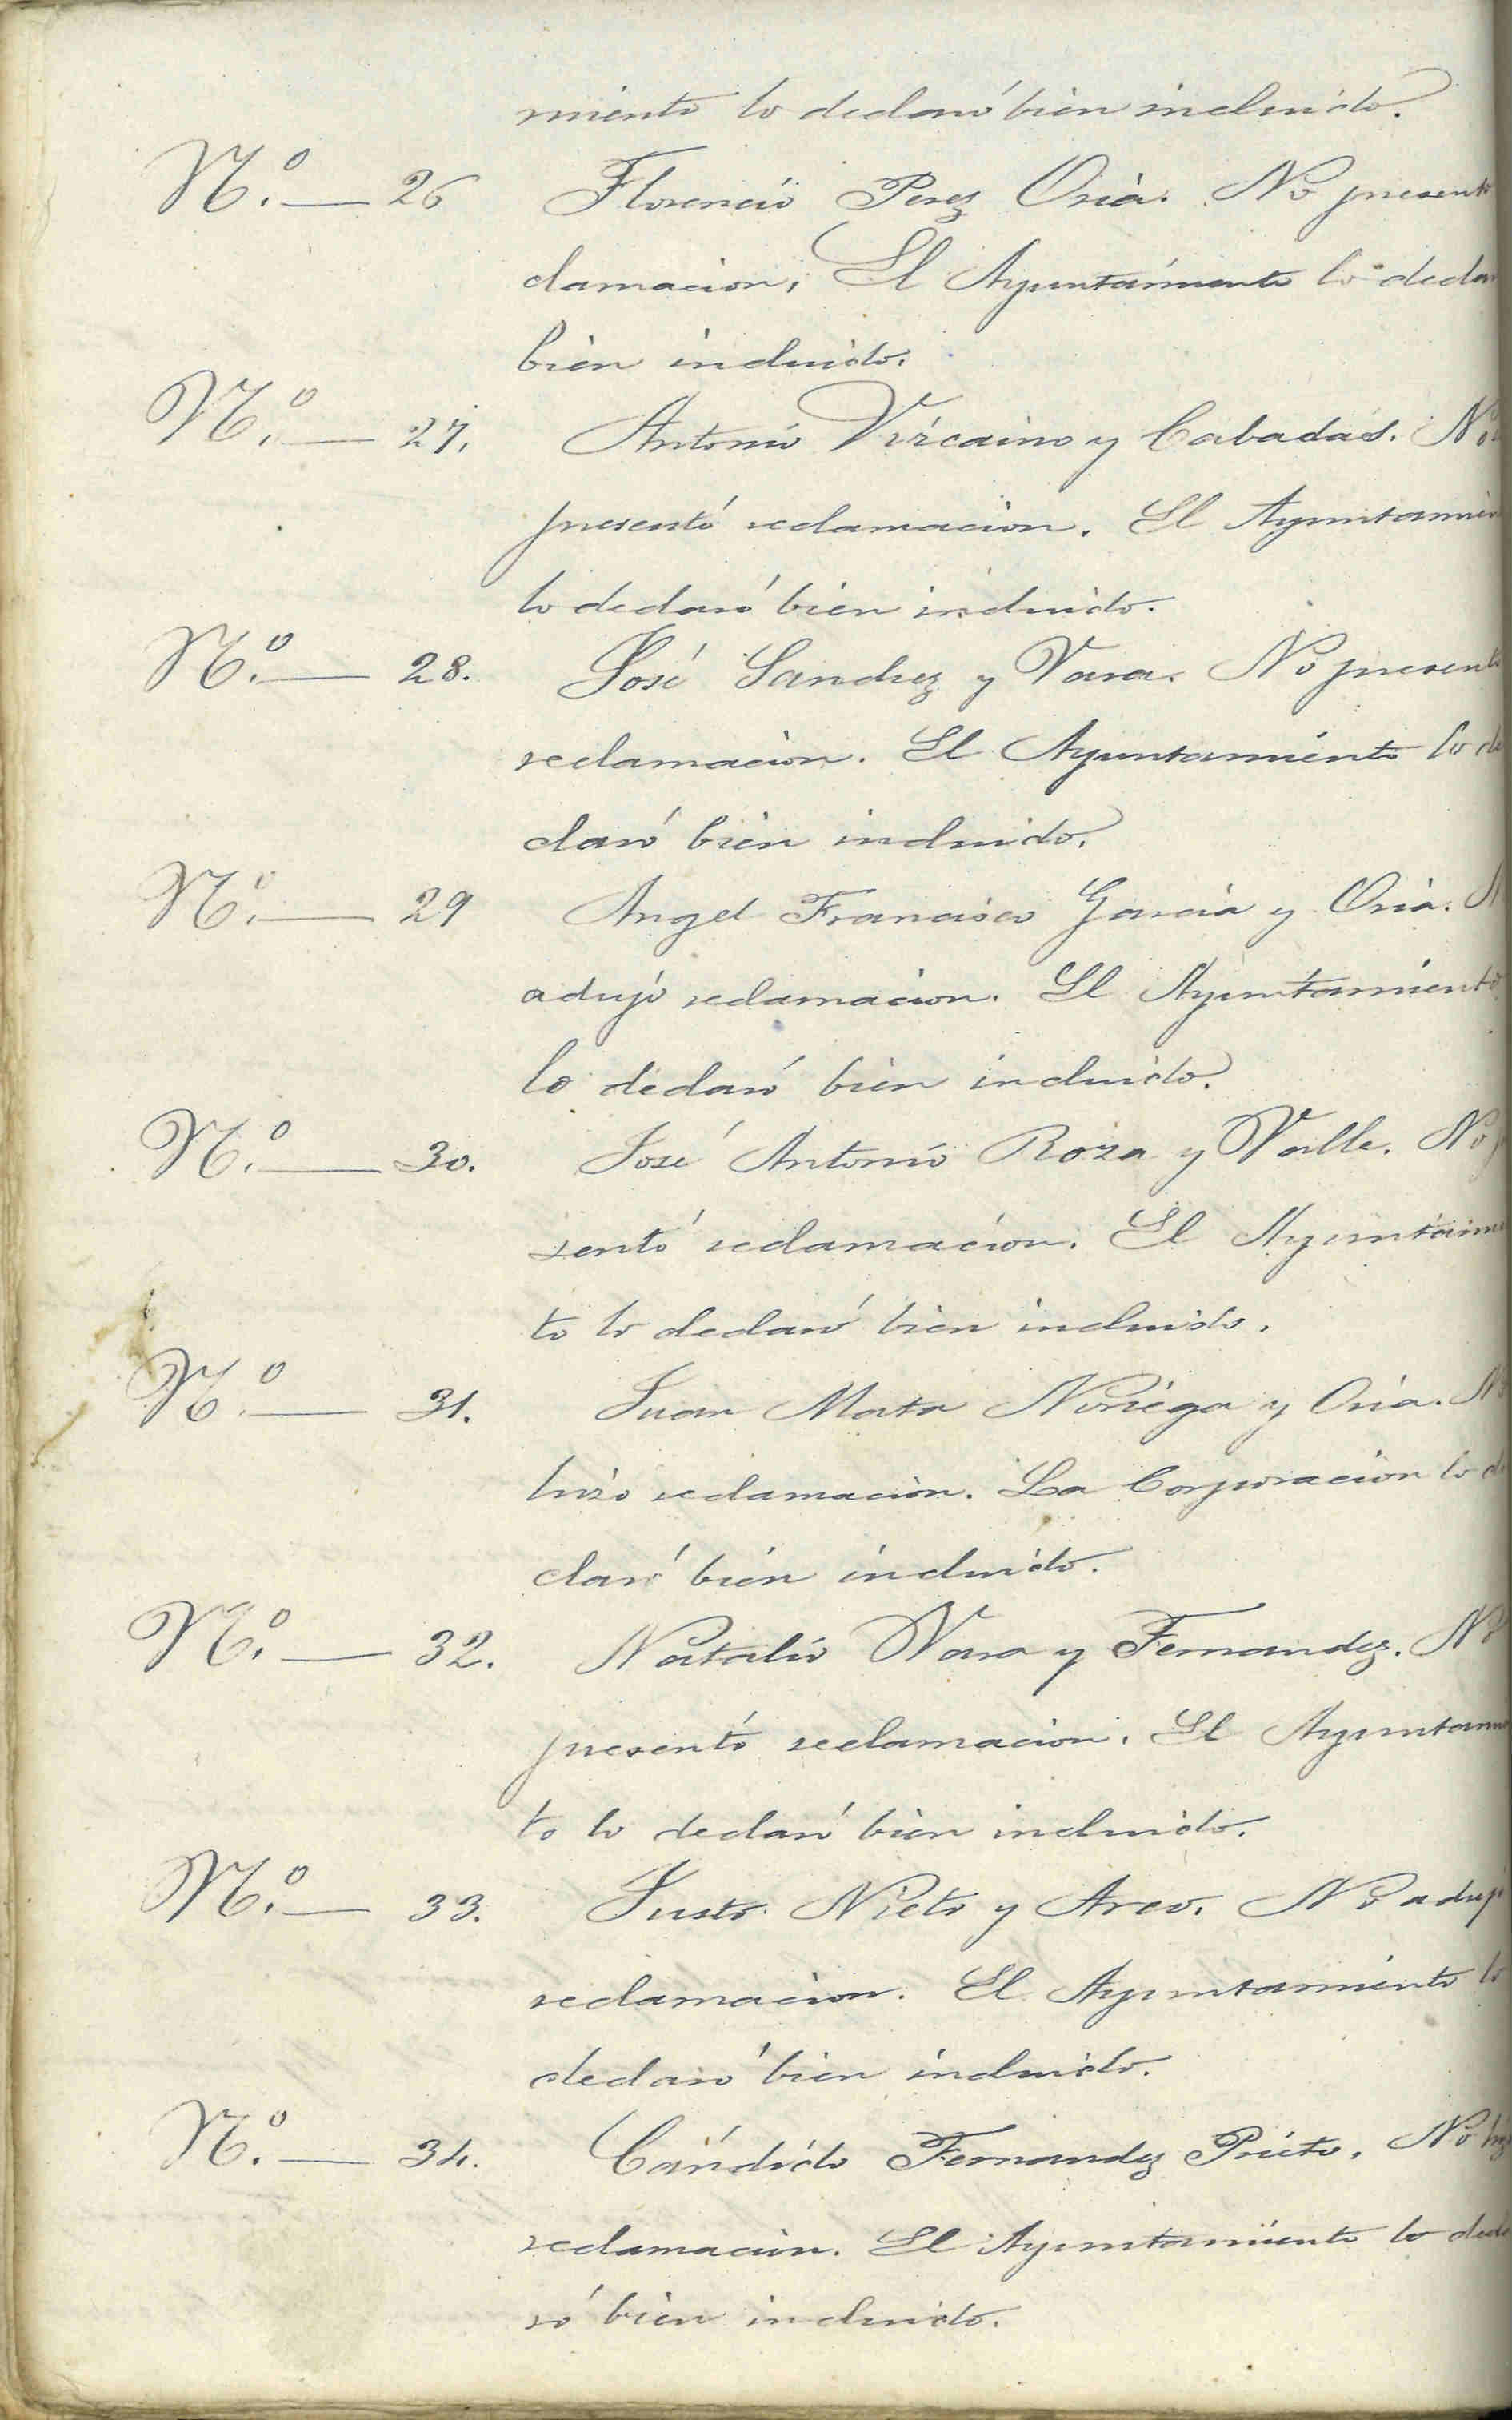 miento lo declaró bien incluido.
N.º — 26 Florencio Perez Oria. No presentó
clamacion, El Ayuntamiento lo decla
bien incluido.
N.º — 27. Antonio Vizcaino y Cabadas. No
presentó reclamacion. El Ayuntamien
lo declaró bien incluido.
N.º — 28. José Sanchez y Vara. No presentó
reclamacion. El Ayuntamiento lo de
claró bien incluido.
N.º — 29 Angel Francisco Garcia y Oria. N
adujo reclamacion. El Ayuntamiento
lo declaró bien incluido.
N.º — 30. José Antonio Roza y Valle. No p
sentó reclamacion. El Ayuntamien
to lo declaró bien incluido.
N.º — 31. Juan Mata Noriega y Oria. No
hizo reclamacion. La Corporacion lo de
claró bien incluido.
N.º — 32. Natalio Vara y Fernandez. No
presentó reclamacion. El Ayuntamien
to lo declaró bien incluido.
N.º — 33. Justo Nieto y Arco. No adujo
reclamacion. El Ayuntamiento lo
declaró bien incluido.
N.º — 34. Cándido Fernandez Prieto. No hiz
reclamacion. El Ayuntamiento lo decla
ró bien incluido.